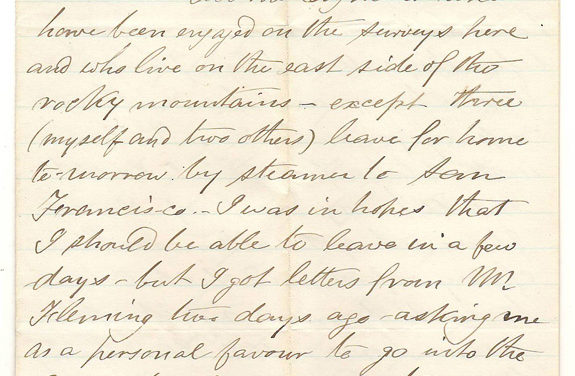 have been engaged on the surveys here
and who live on the east side of the
rocky mountains - except three
(myself and two others) leave for home
to-morrow by steamer to San
Francisco. - I was in hopes that
I should be able to leave in a few
days - but I got letters from Mr
Fleming two days ago - asking me
as a personal favour to go into the